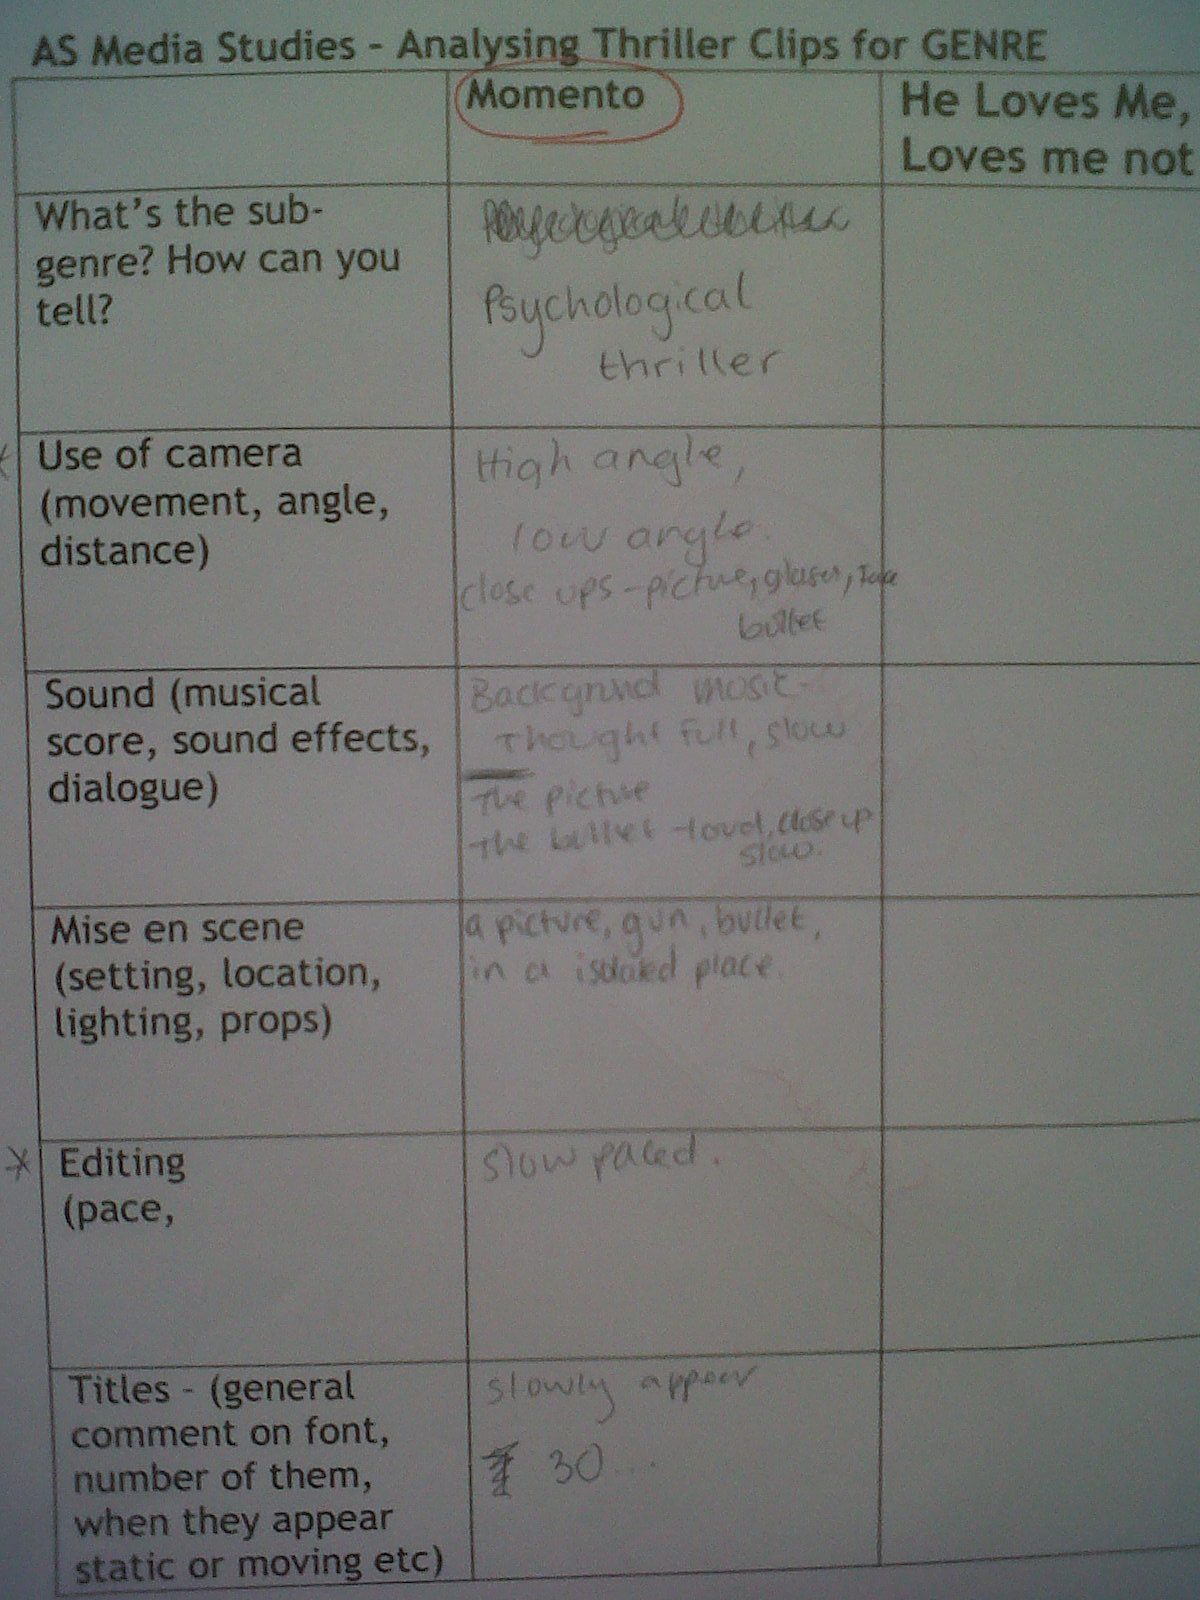 AS Media Studies - Analysing Thriller Clips for GENRE
Momento
He Loves Me,
Loves me not
What's the sub-
genre? How can you
tell?
Psychological
thriller
Use of camera
(movement, angle,
distance)
High angle,
low angle.
close ups - picture, glases,
bullet
Sound (musical
score, sound effects,
dialogue)
Backgrnd mosic -
Thought full, slow
The picture
The bullet - loud, close up
slow.
Mise en scene
(setting, location,
lighting, props)
a picture, gun, bullet,
in a isolated place.
Editing
(pace,
slow paced.
Titles - (general
comment on font,
number of them,
when they appear
static or moving etc)
slowly appear
30...